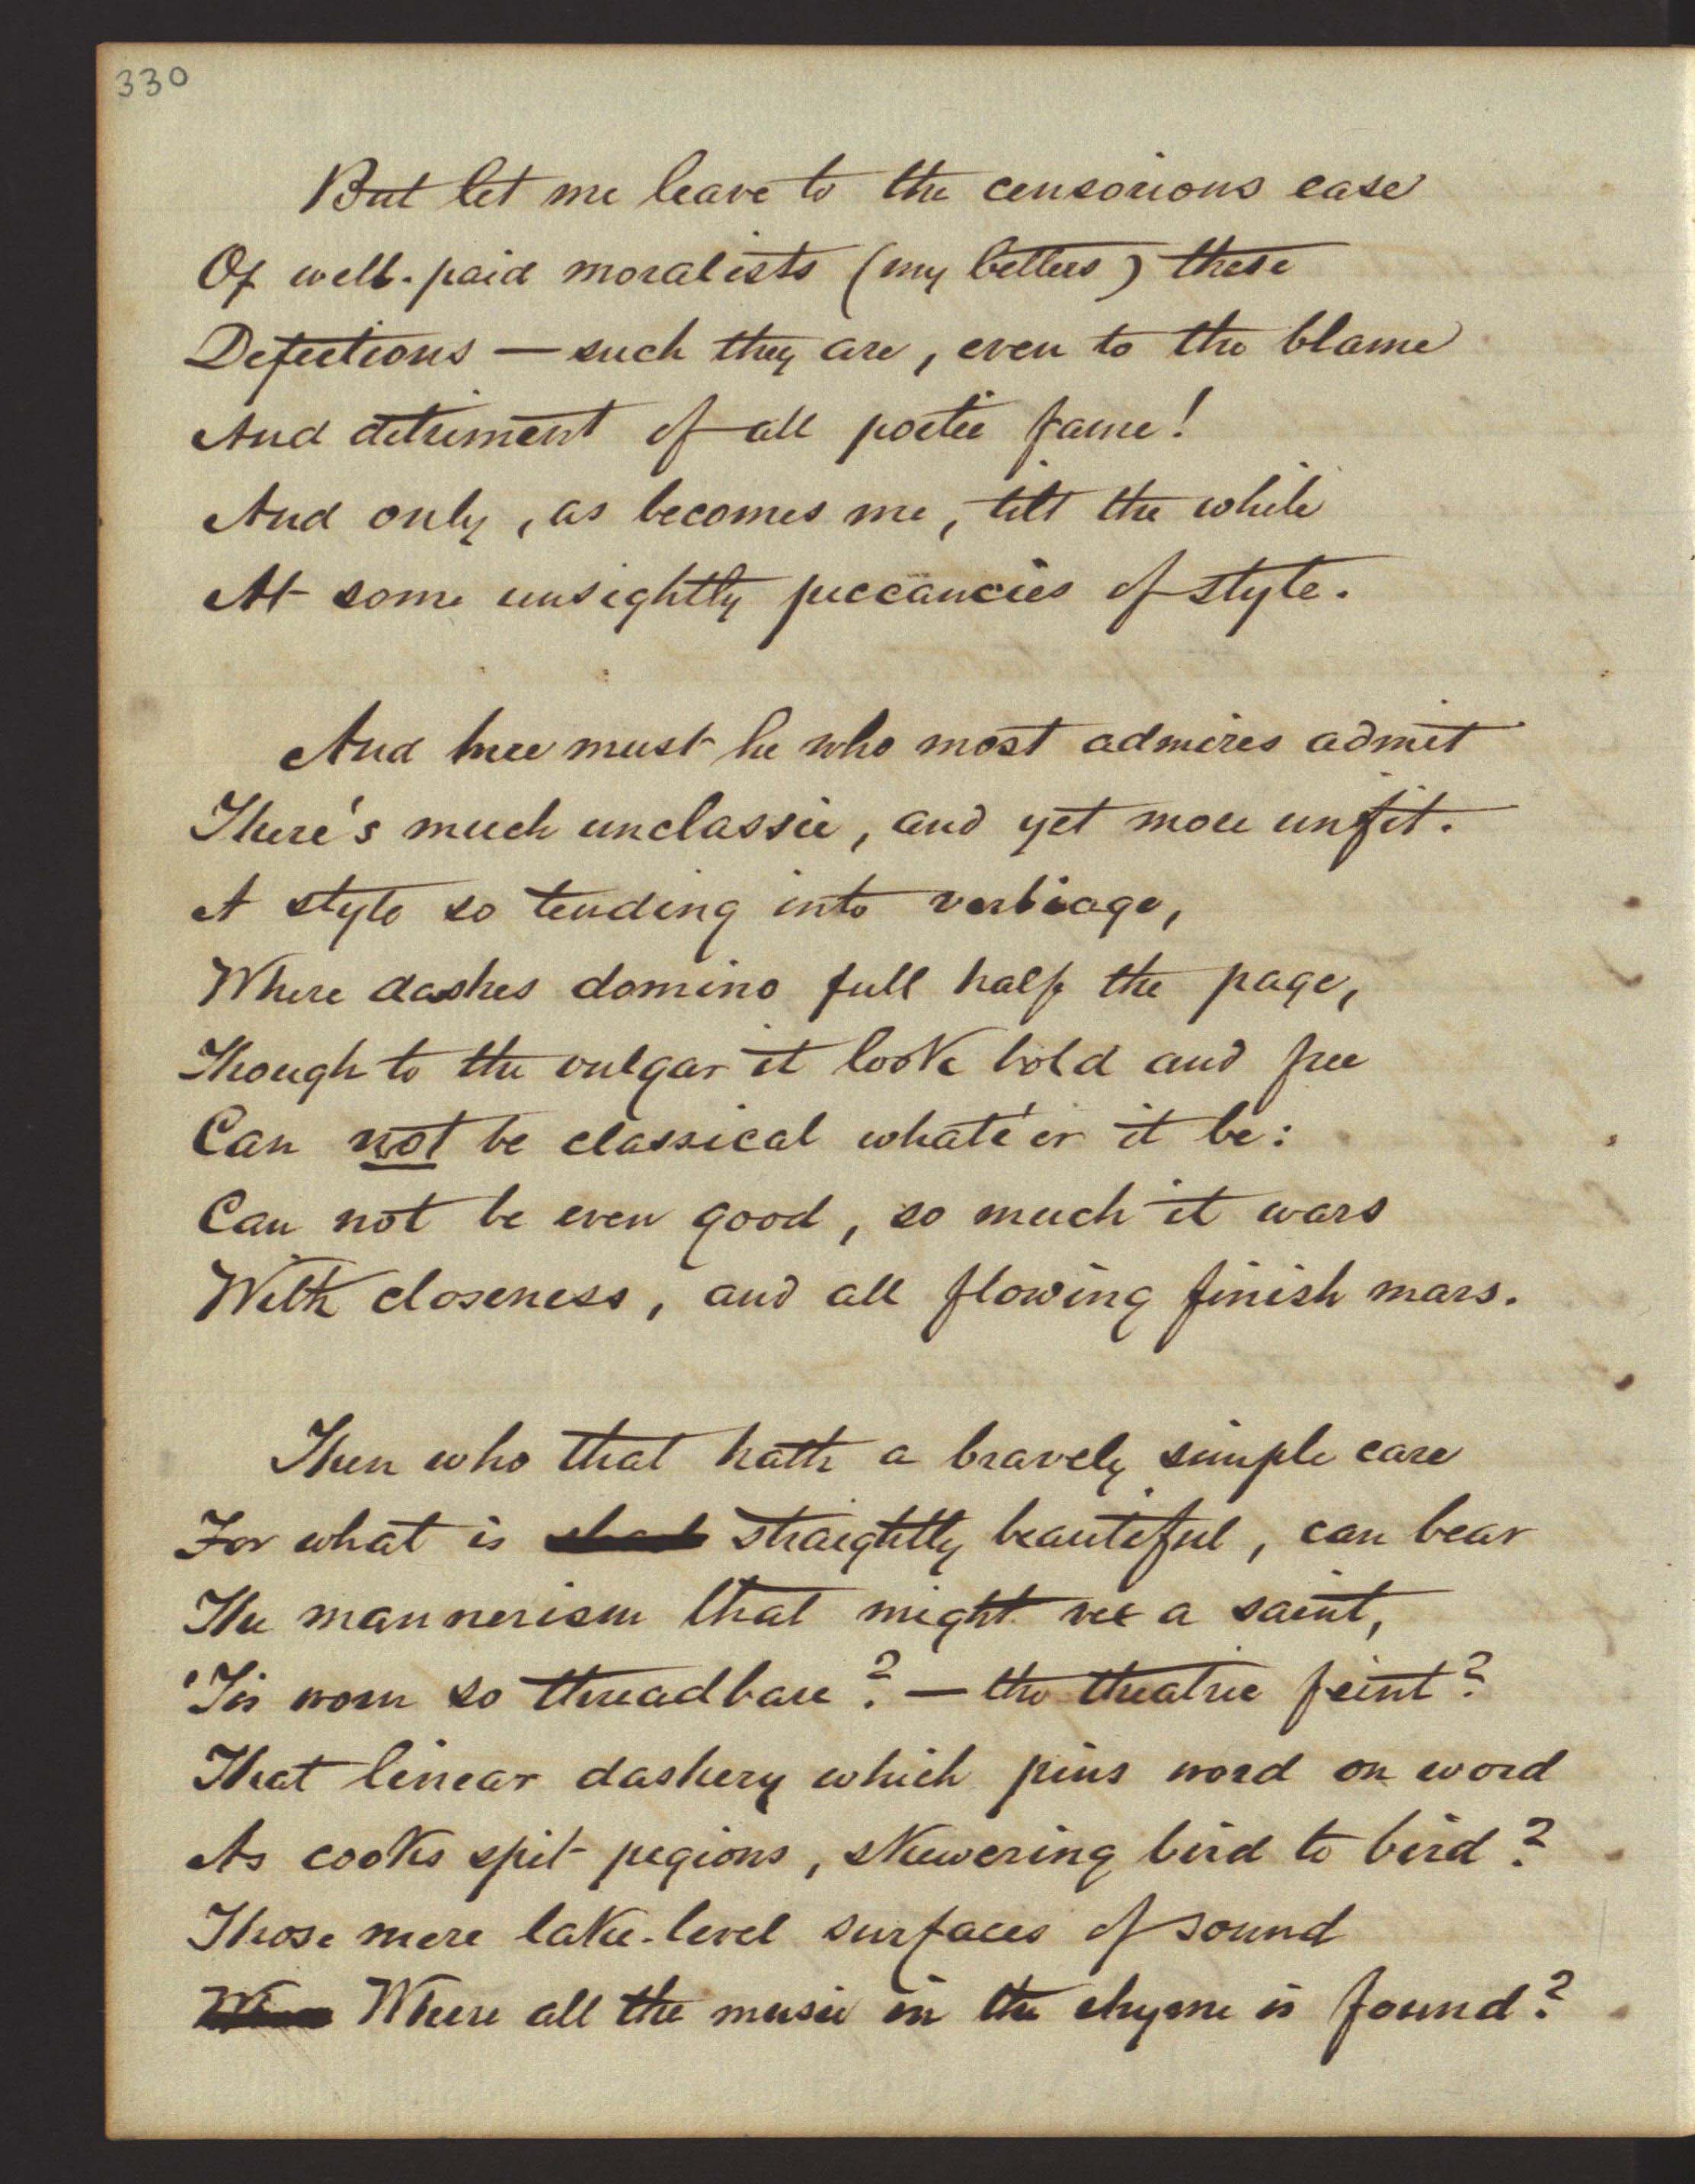 330
But let me leave to the censorious ease
Of well-paid moralists (my betters) these
Defections — such they are, even to the blame
And detriment of all poetic fame!
And only, as becomes me, tilt the while
At some unsightly peccancies of style.
And here must he who most admires admit
There's much unclassic, and yet more unfit.
A style so tending into verbiage,
Where dashes domino full half the page,
Though to the vulgar it look bold and free
Can not be classical whate'er it be:
Can not be even good, so much it wars
With closeness, and all flowing finish mars.
Then who that hath a bravely simple care
For what is straightly beautiful, can bear
The mannerism that might vex a saint,
'Tis worn so threadbare? — the theatric feint?
That linear dashery which pins word on word
As cooks spit pegions, skewering bird to bird?
Those mere lake-level surfaces of sound
Where all the music in the rhyme is found?